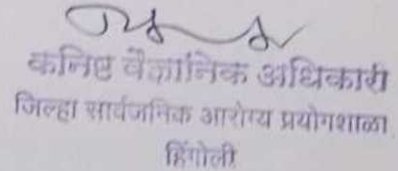 कनिष्ट वैज्ञानिक अधिकारी
जिल्हा सार्वजनिक आरोग्य प्रयोगशाळा
हिंगोली